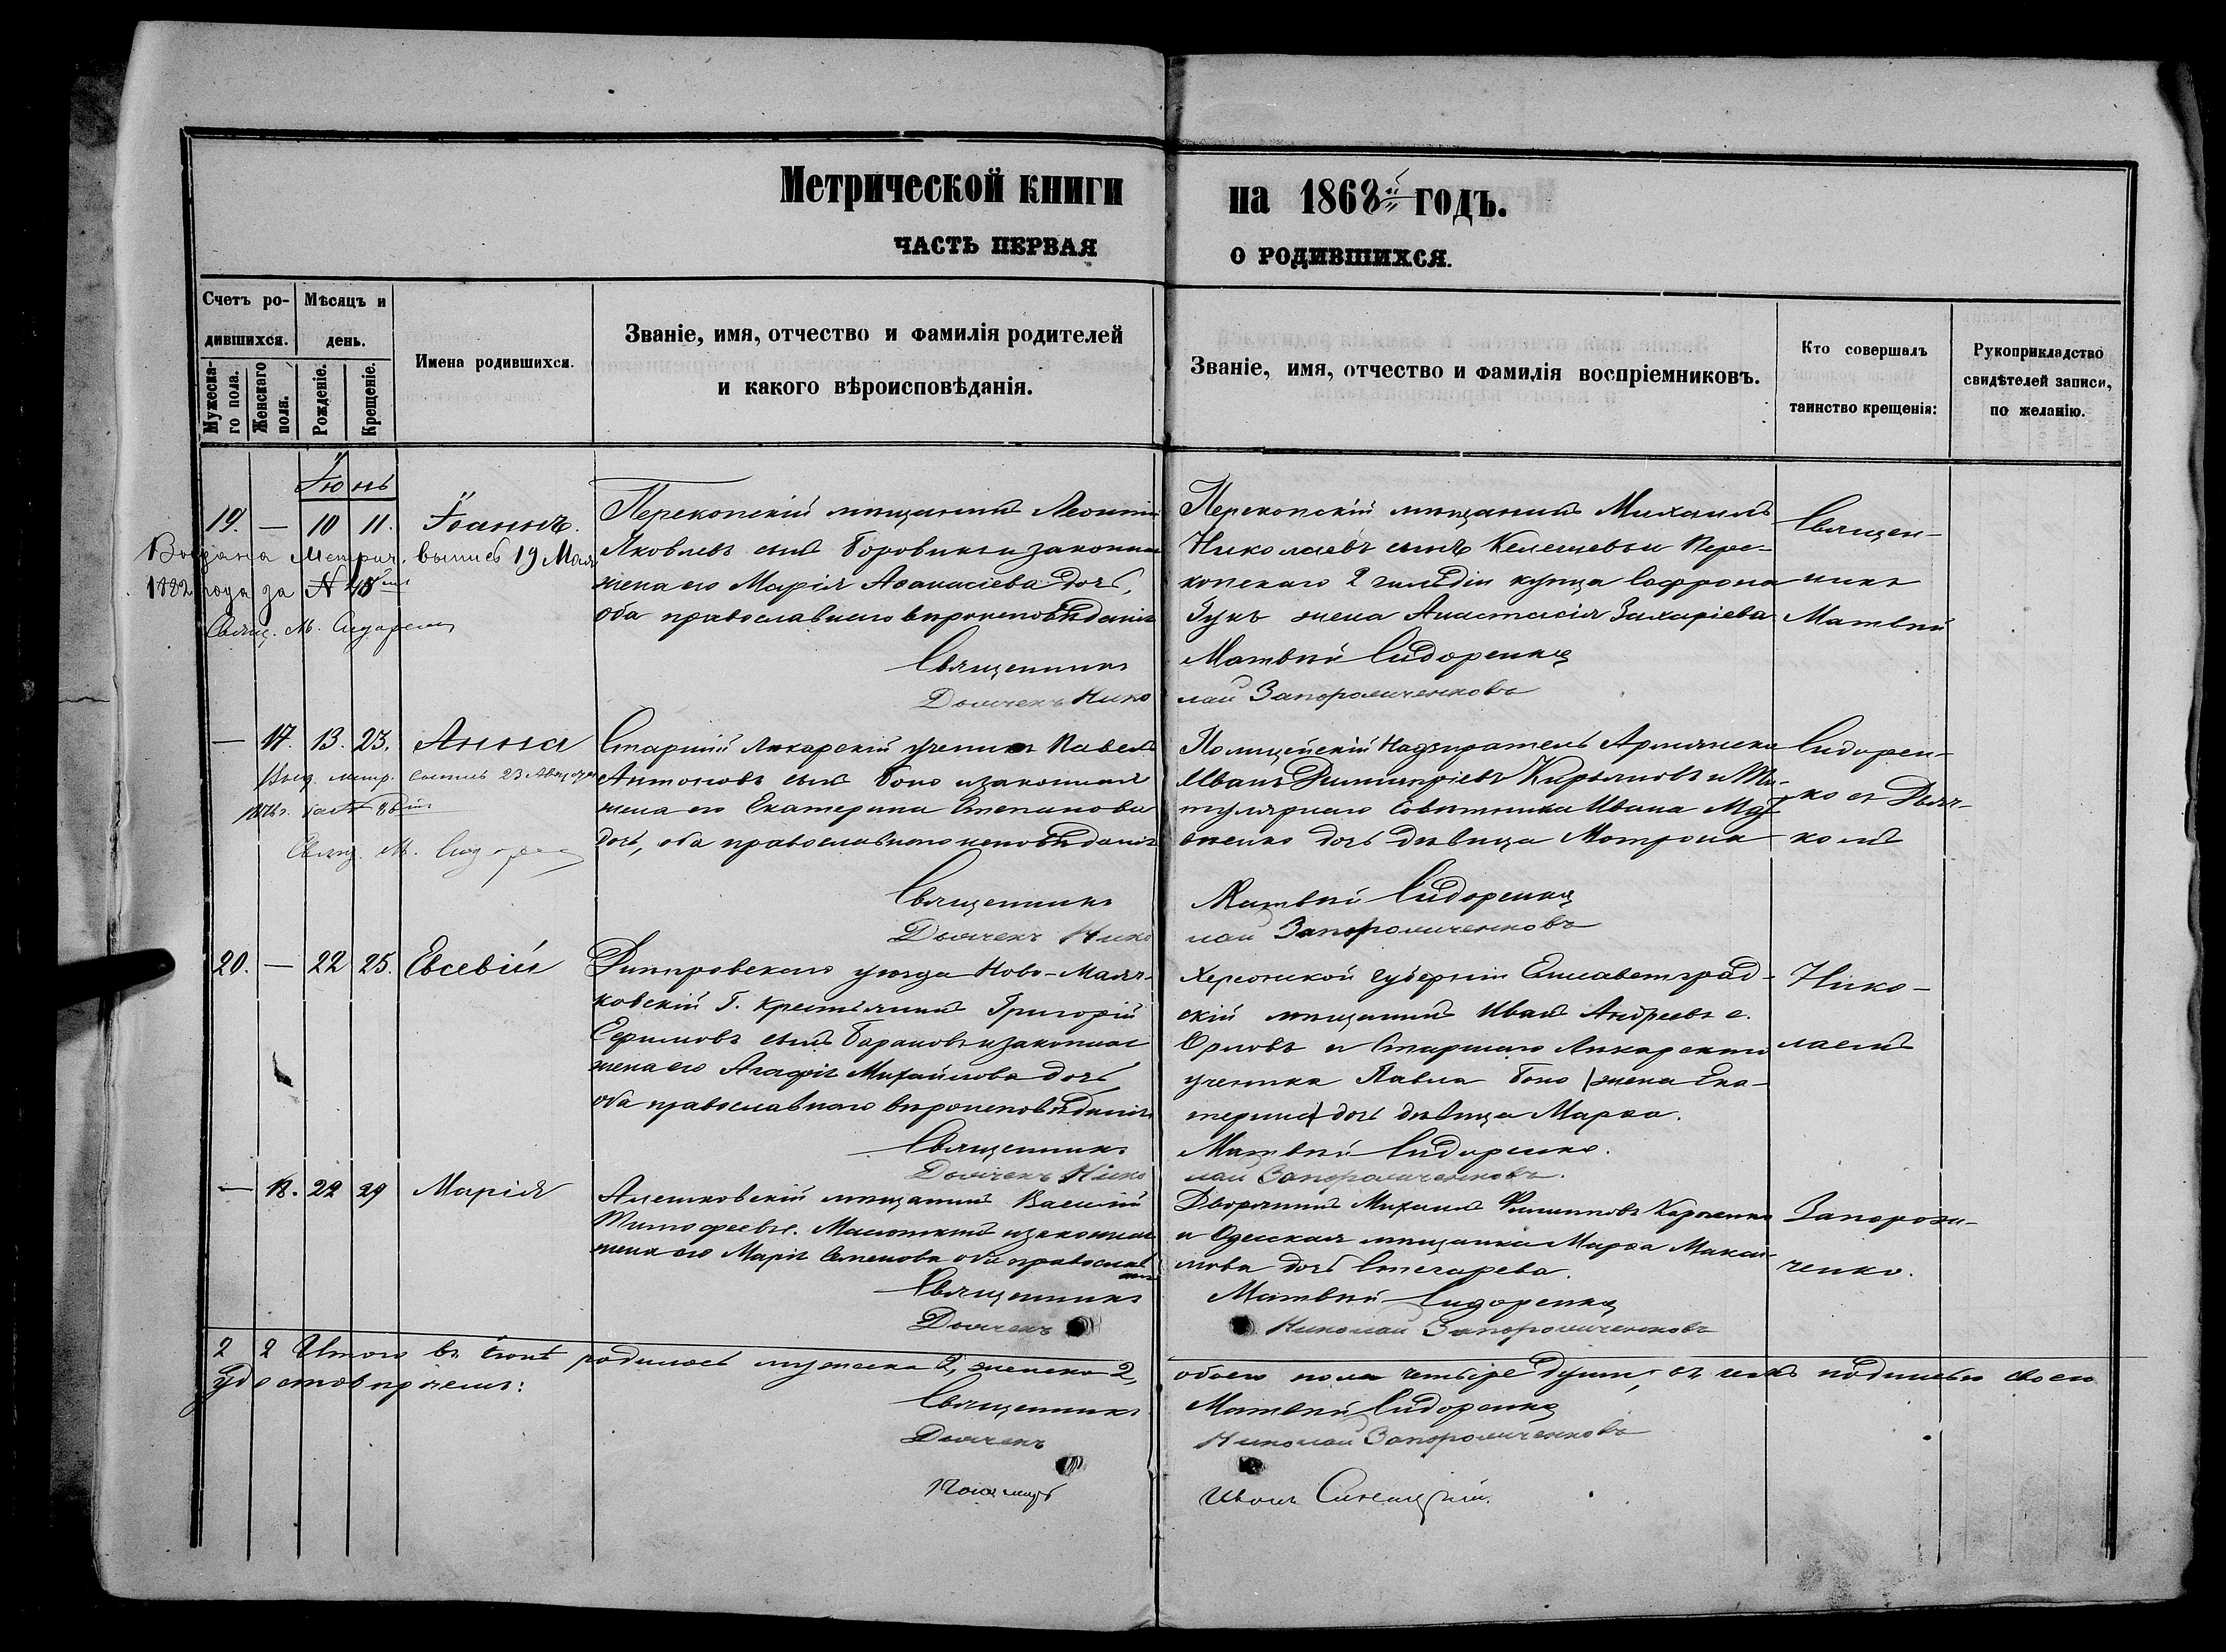 Метрической книги на 1868й годъ.
ЧАСТЬ ПЕРВАЯ О РОДИВШИХСЯ.
Счетъ ро-
дившихся.
Мужеска-
го пола.
Женскаго
пола.
Мѣсяцъ и
день.
Рожденіе.
Крещеніе.
Имена родившихся.
Званіе, имя, отчество и фамилія родителей
и какого вѣроисповѣданія.
Званіе, имя, отчество и фамилія воспріемниковъ.
Кто совершалъ
таинство крещенія:
Рукоприкладство
свидѣтелей записи,
по желанію.
Іюнь
19. — 10 11. Іоаннъ.
Выдана Метрич. выпись 19 Мая
1882 года за № 48
Свящ. М. Сидоренко
Перекопскій мѣщанинъ Леонтій
Яковлевъ сынъ Боровикъ и законная
жена его Марія Аѳанасіева дочь,
оба православнаго вѣроисповѣданія
Священникъ
Дьячекъ Нико
Перекопскій мѣщанинъ Михаилъ
Николаевъ сынъ и Пере-
копскаго 2 гильдіи купца Софрона
Гукъ жена Анастасія Захаріева
Матвѣй Сидоренко
лай Запорожченковъ
Священ-
никъ
Матвѣй
— 17. 13. 23. Анна
Выд. метр. выпись 23
Свящ. М. Сидоренко
Старшій Лѣкарскій ученикъ Павелъ
Антоновъ сынъ Боно и законная
жена его Екатерина Степанова
дочь, оба православнаго исповѣданія
Священникъ
Дьячекъ Нико
Полицейскій Надзиратель Армянска
Иванъ Димитріевъ Кирьяновъ и Ти-
тулярнаго Совѣтника Ивана
дочь дѣвица Матрона
Матвѣй Сидоренко
лай Запорожченковъ
Сидорен-
ко съ Дьяч-
комъ
20. — 22 25. Евсевій
Днѣпровскаго уѣзда Ново-Маяч-
ковскій Г. крестьянинъ Григорій
Ефимовъ сынъ Барановъ и законная
жена его Агафія Михайлова дочь
оба православнаго вѣроисповѣданія
Священникъ
Дьячекъ Нико
Херсонской губерніи Елисаветград-
скій мѣщанинъ Иванъ Андреевъ с.
Орловъ и Старшаго Лѣкарскаго
ученика Павла Боно (жена Ека-
терина) дочь дѣвица Марѳа.
Матвѣй Сидоренко.
лай Запорожченковъ.
Нико-
лаемъ
— 18. 22 29 Марія
Алешковскій мѣщанинъ Василій
Тимофеевъ с. и законная
жена его Марія Семенова оба православ
Священникъ
Дьячекъ
Дворянинъ Михаилъ Филипповъ
и Одесская мѣщанка Марѳа Макси-
мова дочь
Матвѣй Сидоренко
Николай Запорожченковъ
Запорож-
ченко.
2 2 Итого въ Іюнѣ родилось мужеска 2, женска 2, обоего пола четыре души, въ чемъ подписью своею
удостовѣряемъ:
Священникъ Матвѣй Сидоренко
Дьячекъ Николай Запорожченковъ
Иванъ